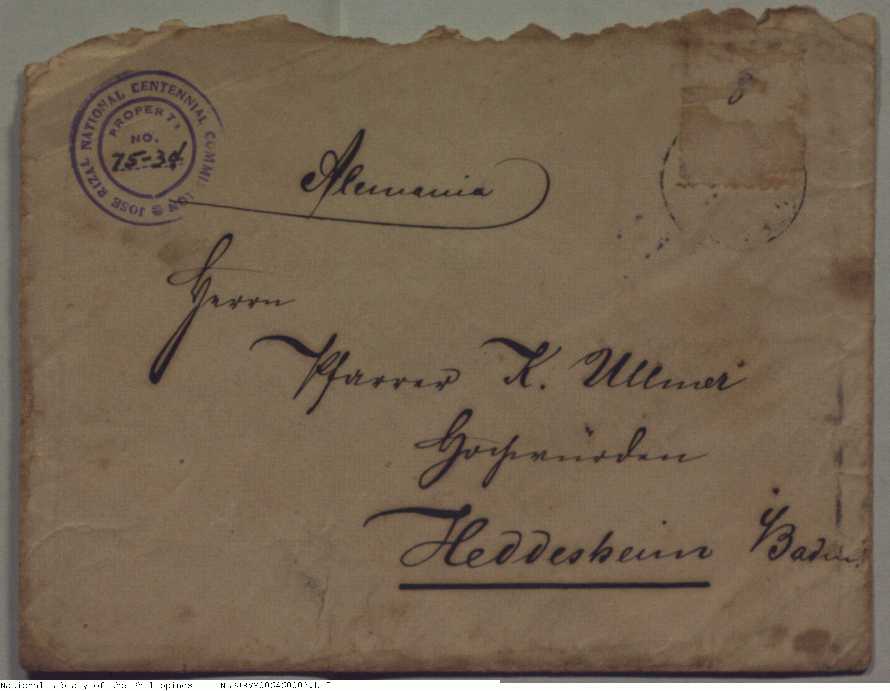 JOSE RIZAL NATIONAL CENTENNIAL
PROPERTY
NO.
75-34
8
Alemania
Herrn
Pfarrer K. Ullmer
Hochwürden
Heddesheim i/Baden.
National Library of the Philippines